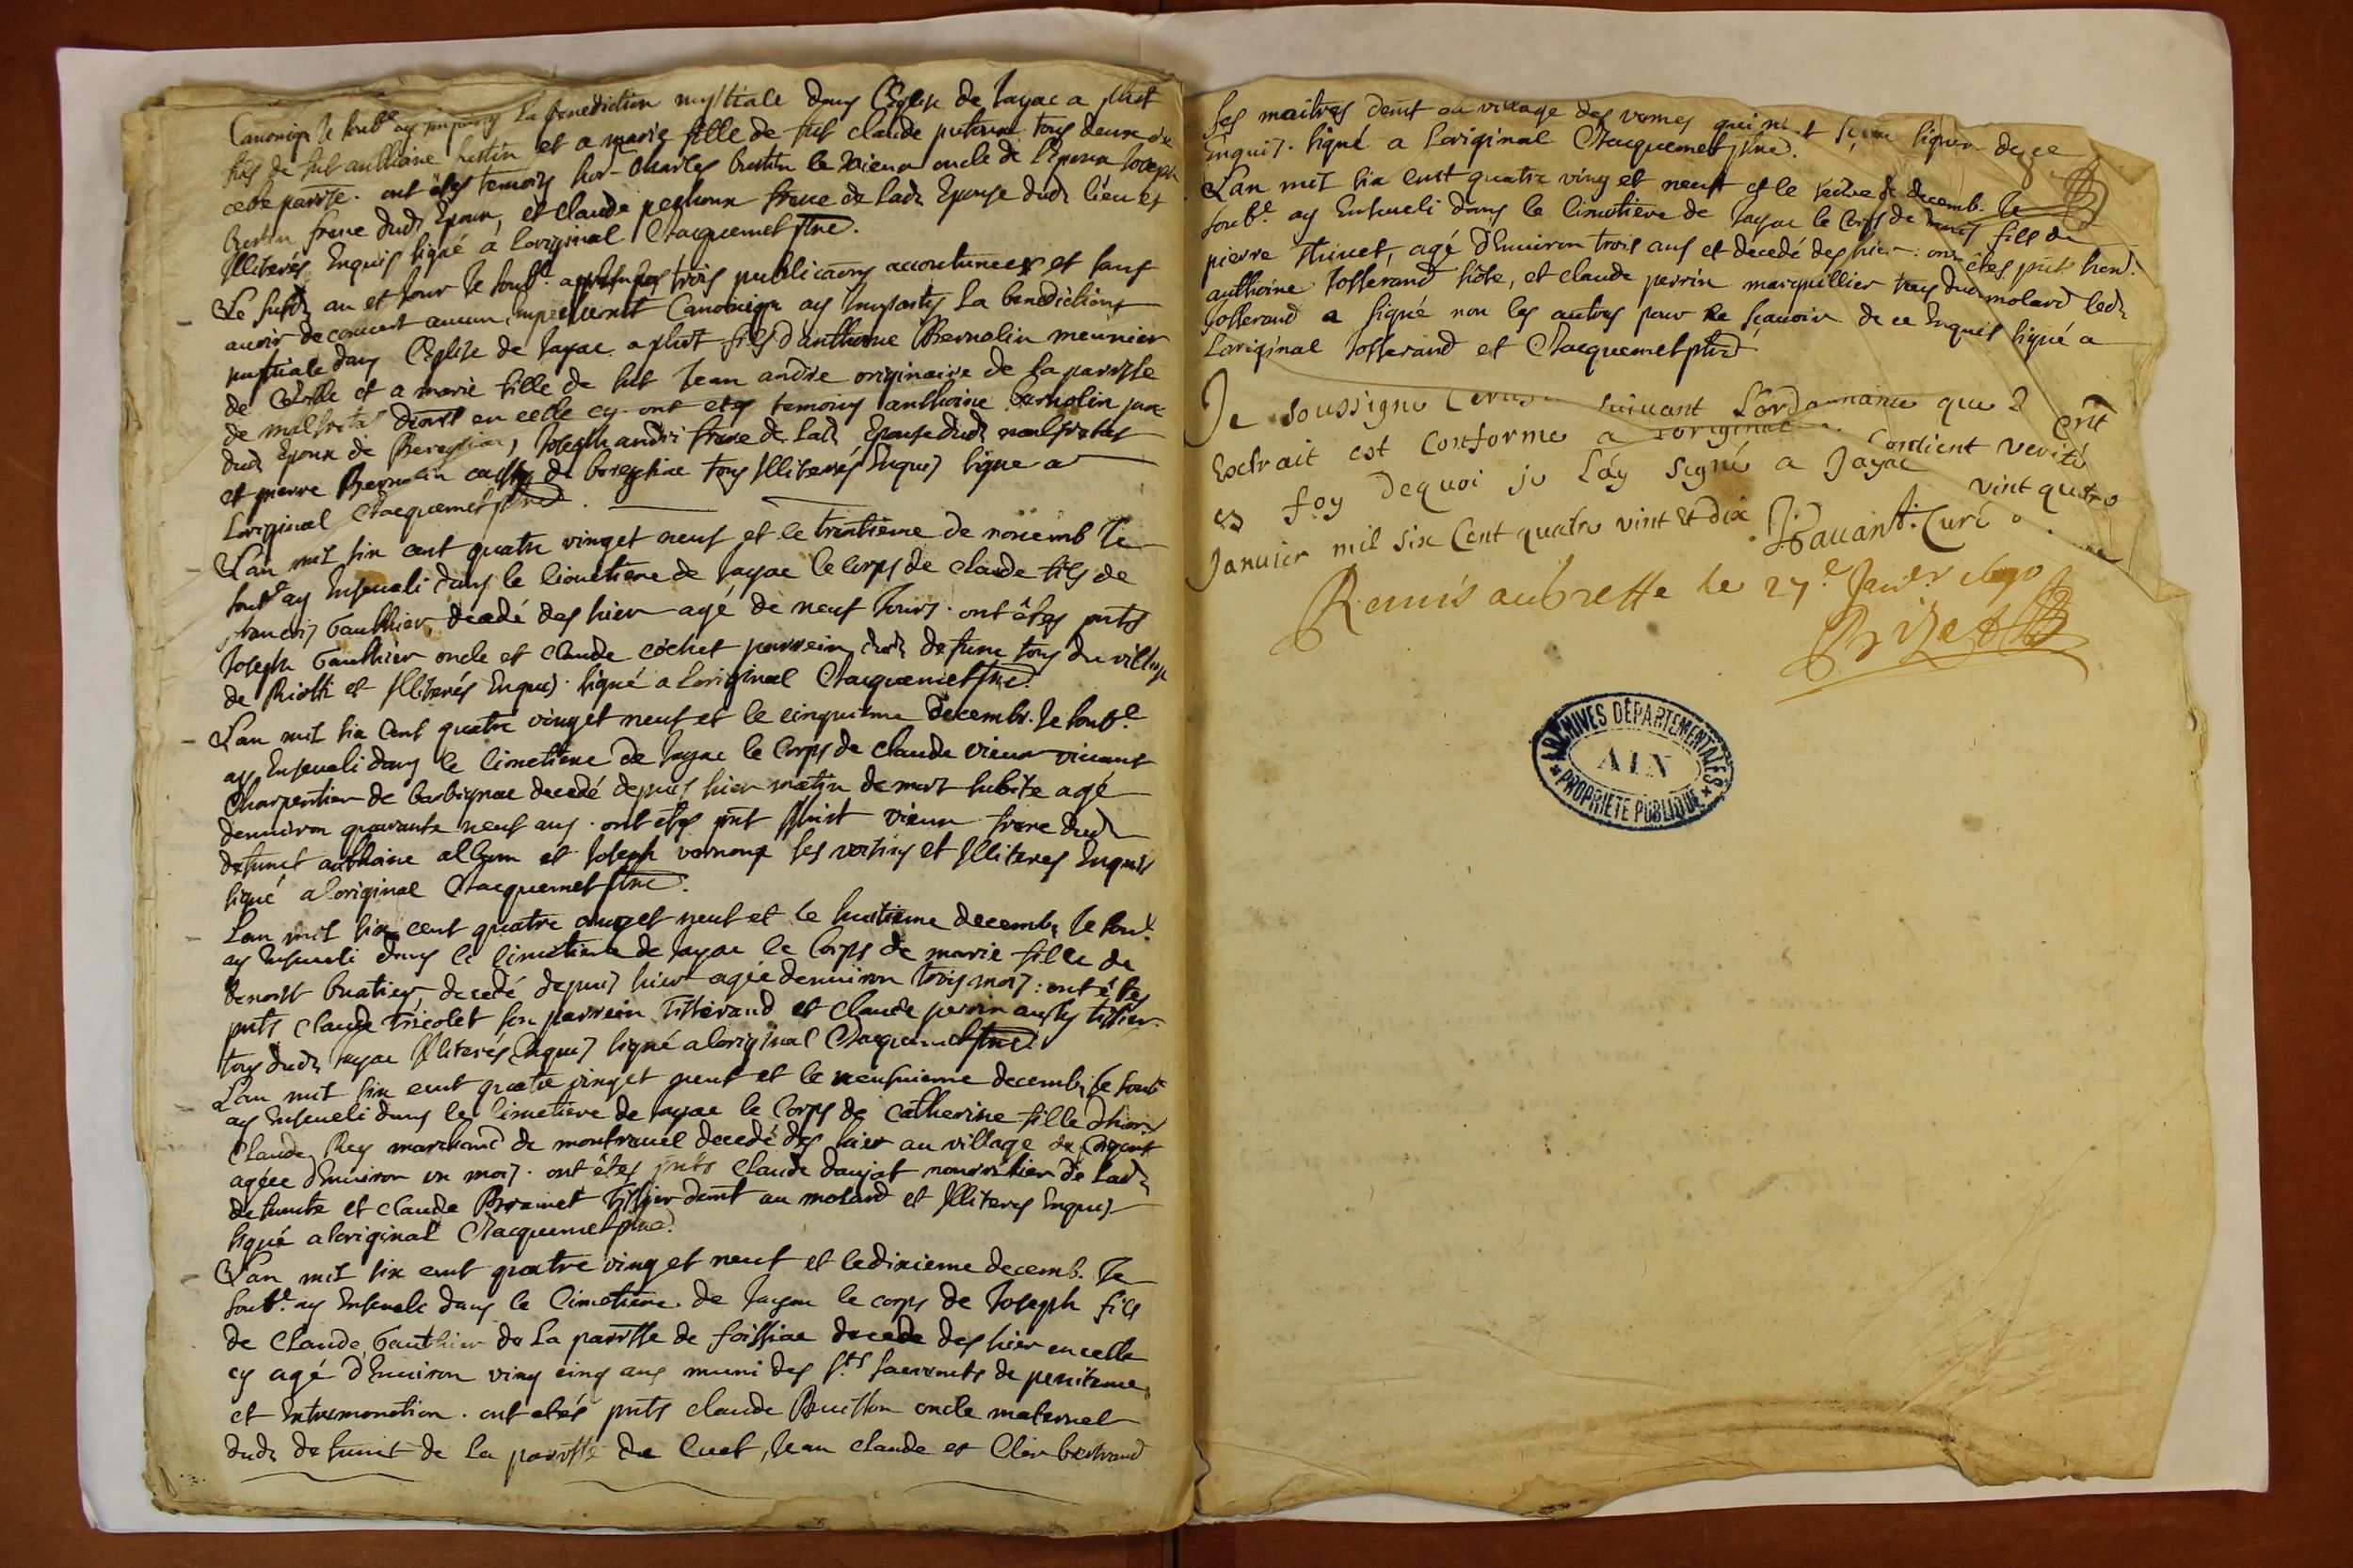 Canonique Je soub.e ay imparty La benediction nuptiale dans l'Eglise de Jayac a phist
fils de fut anthoine bertin et a marie fille de fut claude tous deux de
cete parrsse. ont étés temoins hor. Charles bertin le vieux oncle de l'Epoux Joseph
bertin frere dud. Epoux, et claude frere de lad. Epouse dud. lieu et
Illiterés Enquis signé à l'original Chacquemet ptre.
Le susd. an et jour Je soub.e apres les trois publicaons accoutumées et sans
avoir decouvert aucun empechement Canonique ay Imparty la benediction
nuptiale dans l'Eglise de Jayac a phist fils d'anthoine Bernolin meunier
de et a marie fille de fut Jean andre originaire de la parrsse
de malfretas demt en celle cy. ont etés temoins anthoine bernolin
dud. Epoux de Bereysiac, Joseph andre frere de lad. Epouse dud. malfretas
et pierre Bernolin de bereysiac tous Illiterés Enquis signé a
L'original Chacquemet ptre.
L'an mil six cent quatre vinget neuf et le trentieme de novemb Je
soub.e ay Enseveli dans le Cimetiere de Jayac le Corps de claude fils de
francois Gauthier, decedé des hier agé de neuf Jours. ont étés pnts
Joseph Gauthier oncle et claude cochet parrein dud. defunc tous du village
de Riotti et Illiterés Enquis. signé a l'original Chacquemet ptre.
L'an mil six Cent quatre vinget neuf et le cinquieme decembr. Je soub.e
ay Enseveli dans le Cimetiere de Jayac le Corps de claude vieux vivant
Charpentier de barbignac decedé depuis hier matin de mort subite agé
denviron quarante neuf ans. ont étés pnt phist vieux frere dud.
defunct anthoine et Joseph vernoux ses voisins et Illiteres Enquis
signé a loriginal Chacquemet ptre.
Lan mil six cent quatre vinget neuf et le huitieme decemb. Je sou.
ay Enseveli dans le Cimetiere de Jayac le Corps de marie fille de
benoist buatier, decedé depuis hier agée denviron trois mois: ont étés
pnts claude tricolet son parrein Tisserand et claude perrin aussy tissier
tous dud. Jayac Illiterés Enquis signé a loriginal Chacquemet ptre.
Lan mil six cent quatre vinget neuf et le neufvieme decemb. Je soub.e
ay Enseveli dans le Cimetiere de Jayac le Corps de Catherine fille d'hor.
Claude Rey marchand de montrevel decedé des hier au village de
agée d'Environ un mois. ont étés pnts Claude daujat nourritier de lad.
defuncte et claude Brainet Tissier demt au molard et Illiterés Enquis
signé a loriginal Chacquemet ptre.
L'an mil six cent quatre vinget neuf et le dixieme decemb. Je
soub.e ay Enseveli dans le Cimetiere de Jayac le corps de Joseph fils
de Claude Gauthier de La parrsse de foissiac decede des hier en celle
cy agé d'Environ ving cinq ans muni des s.ts sacremts de penitence
et Extremonction. ont etés pnts claude Buisson oncle maternel
dud. defunct de La parrsse de Cuet, Jean claude et Cler bertrand
ses maitres demt au village des vernes qui n'ont sceu signer de ce
Enquis. signé a Loriginal Chacquemet ptre.
L'an mil six cent quatre ving et neuf et le de decemb. Je
soub.e ay Enseveli dans le Cimetiere de Jayac le Corps de fils de
pierre Thivet, agé d'Environ trois ans et decedé des hier: ont étés pnts hon.
anthoine Josserand hôte, et claude perrin marguillier tous dud. molard led.
Josserand a signé non les autres pour ne scavoir de ce Enquis signé a
Loriginal Josserand et Chacquemet ptre
Je soussigne Certifie suivant L'ordonnance que Le prst
Extrait est Conforme a Loriginal contient verité
En foy Dequoi je L'ay Signé a Jayac vint quatre
Janvier mil six Cent quatre vint et dix Curé
Remis au Greffe le 27.e Janv.r 1690
ARCHIVES DÉPARTEMENTALES
AIN
PROPRIÉTÉ PUBLIQUE